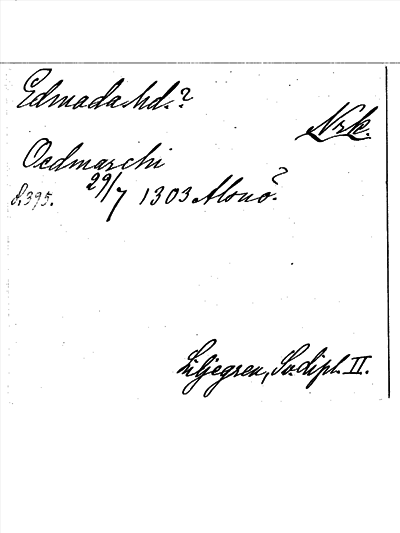 Edmada hd.?
Nrk.
Oedmarchi
S.395. 29/7 1303 Alsnö?
Liljegren, Sv. dipl. II.